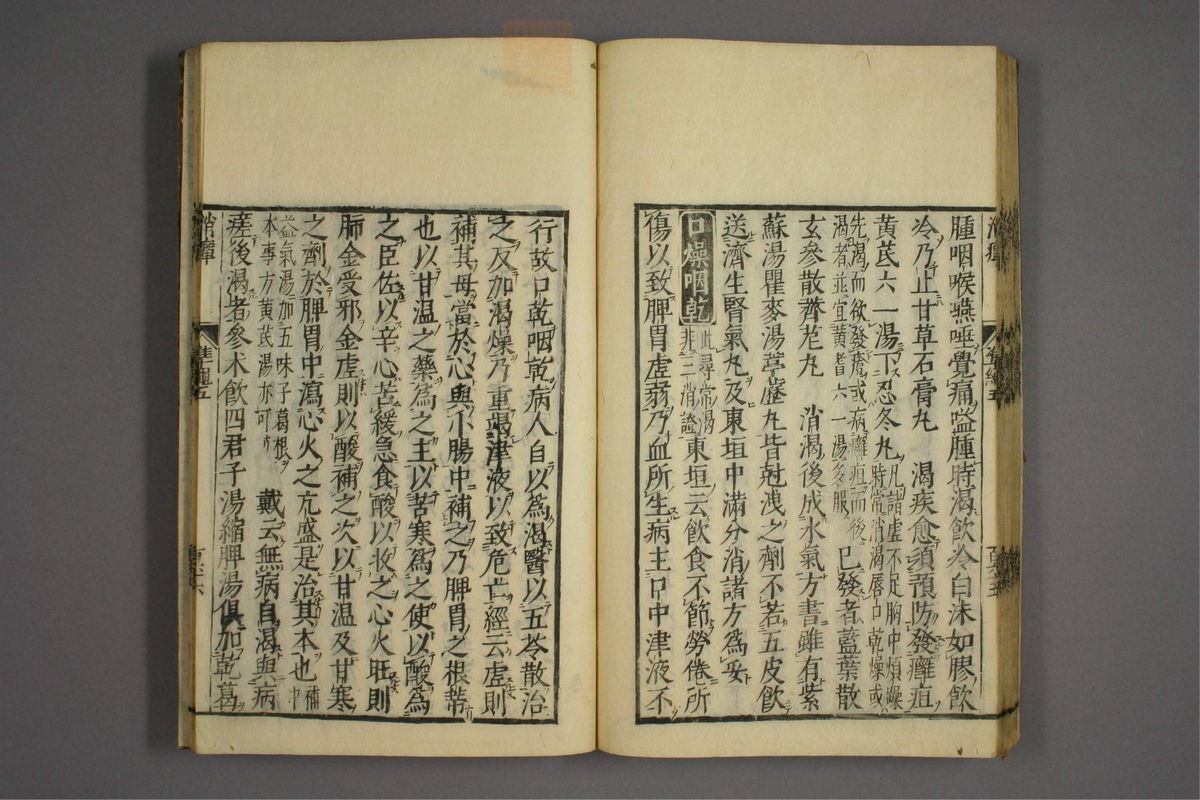 腫咽喉嚥唾覺痛嗌腫時渴飲冷白沫如膠飲
冷乃止甘草石膏丸　渴疾愈須預防發癰疽
黃芪六一湯下忍冬丸凡諸虛不足胸中煩躁
時常消渴唇口乾燥或
先渴而欲發瘡或病癰疽而後
渴者並宜黃耆六一湯多服　已發者藍葉散
玄參散薺苨丸　消渴後成水氣方書雖有紫
蘇湯瞿麥湯葶藶丸皆尅洩之劑不若五皮飲
送濟生腎氣丸及東垣中滿分消諸方爲妥
口燥咽乾此尋常渴
非三消證東垣云飲食不節勞倦所
傷以致脾胃虛弱乃血所生病主口中津液不
行故口乾咽乾病人自以爲渴醫以五苓散治
之反加渴燥乃重竭津液以致危亡經云虛則
補其母當於心與小腸中補之乃脾胃之根蒂
也以甘溫之藥爲之主以苦寒爲之使以酸爲
之臣佐以辛心苦緩急食酸以收之心火旺則
肺金受邪金虛則以酸補之次以甘溫及甘寒
之劑於脾胃中瀉心火之亢盛是治其本也補中
益氣湯加五味子葛根
本事方黃芪湯亦可　戴云無病自渴與病
瘥後渴者參朮飲四君子湯縮脾湯俱加乾葛